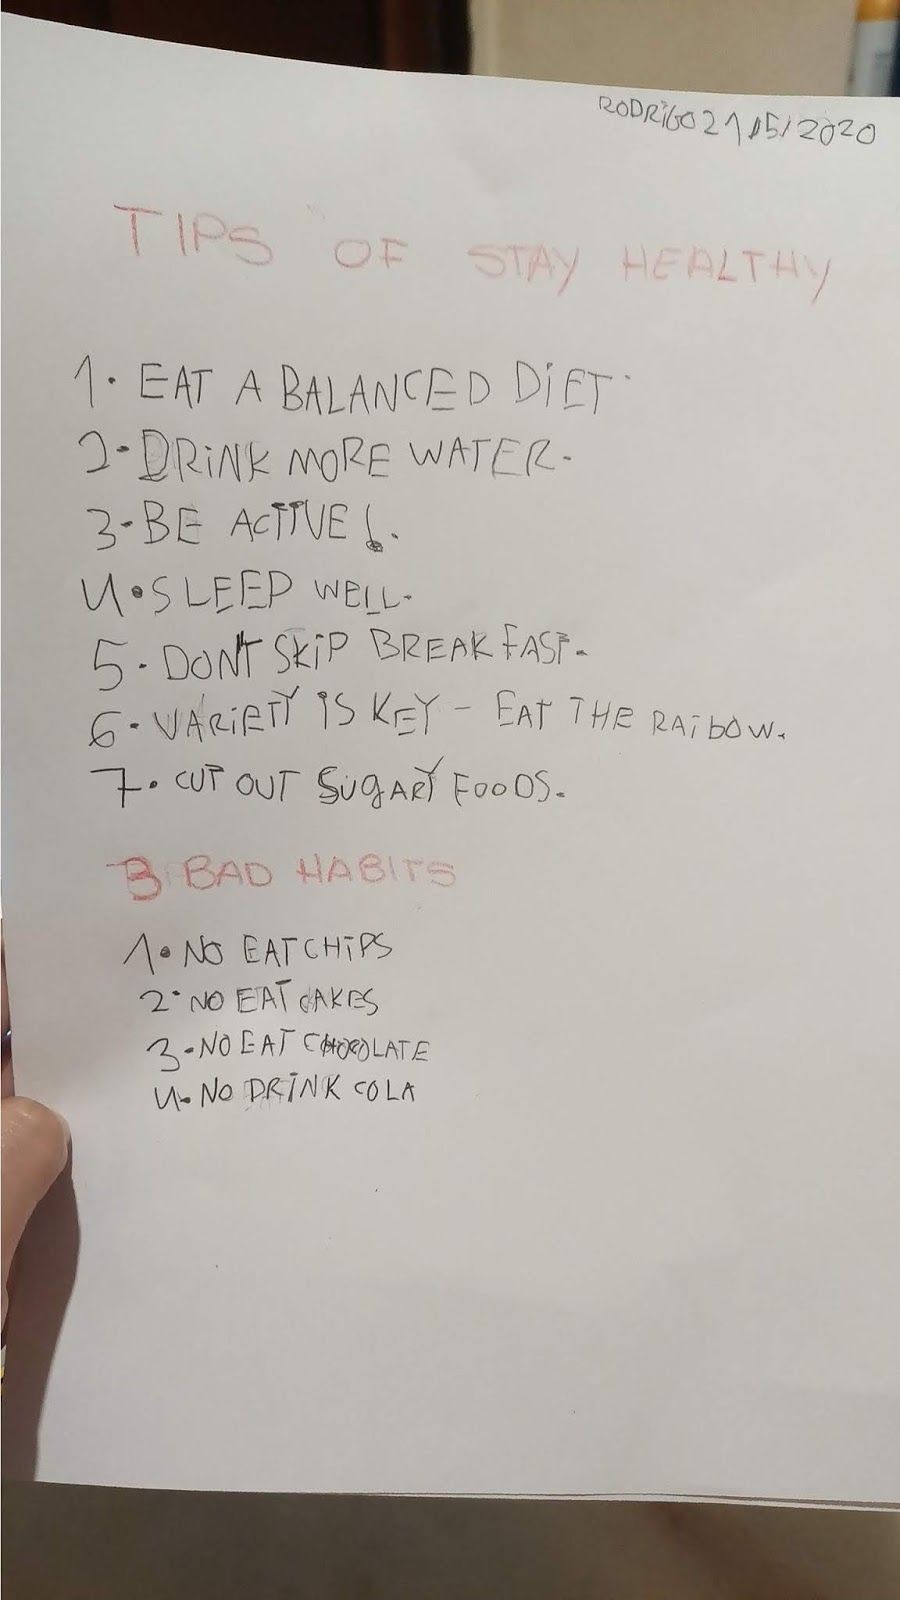 RODRiGO 21/5/2020
TIPS OF STAY HEALTHY
1. EAT A BALANCED DiET.
2-DRiNK MORE WATER.
3-BE ACTIVE!.
4.SLEEP WELL.
5-DON'T SKiP BREAKFAST.
6-VARiETY iS KEY - EAT THE RAiBOW.
7. CUT OUT SUGARY FOODS.
3 BAD HABITS
1. NO EAT CHiPS
2. NO EAT CAKES
3-NO EAT CHOCOLATE
4. NO DRiNK COLA